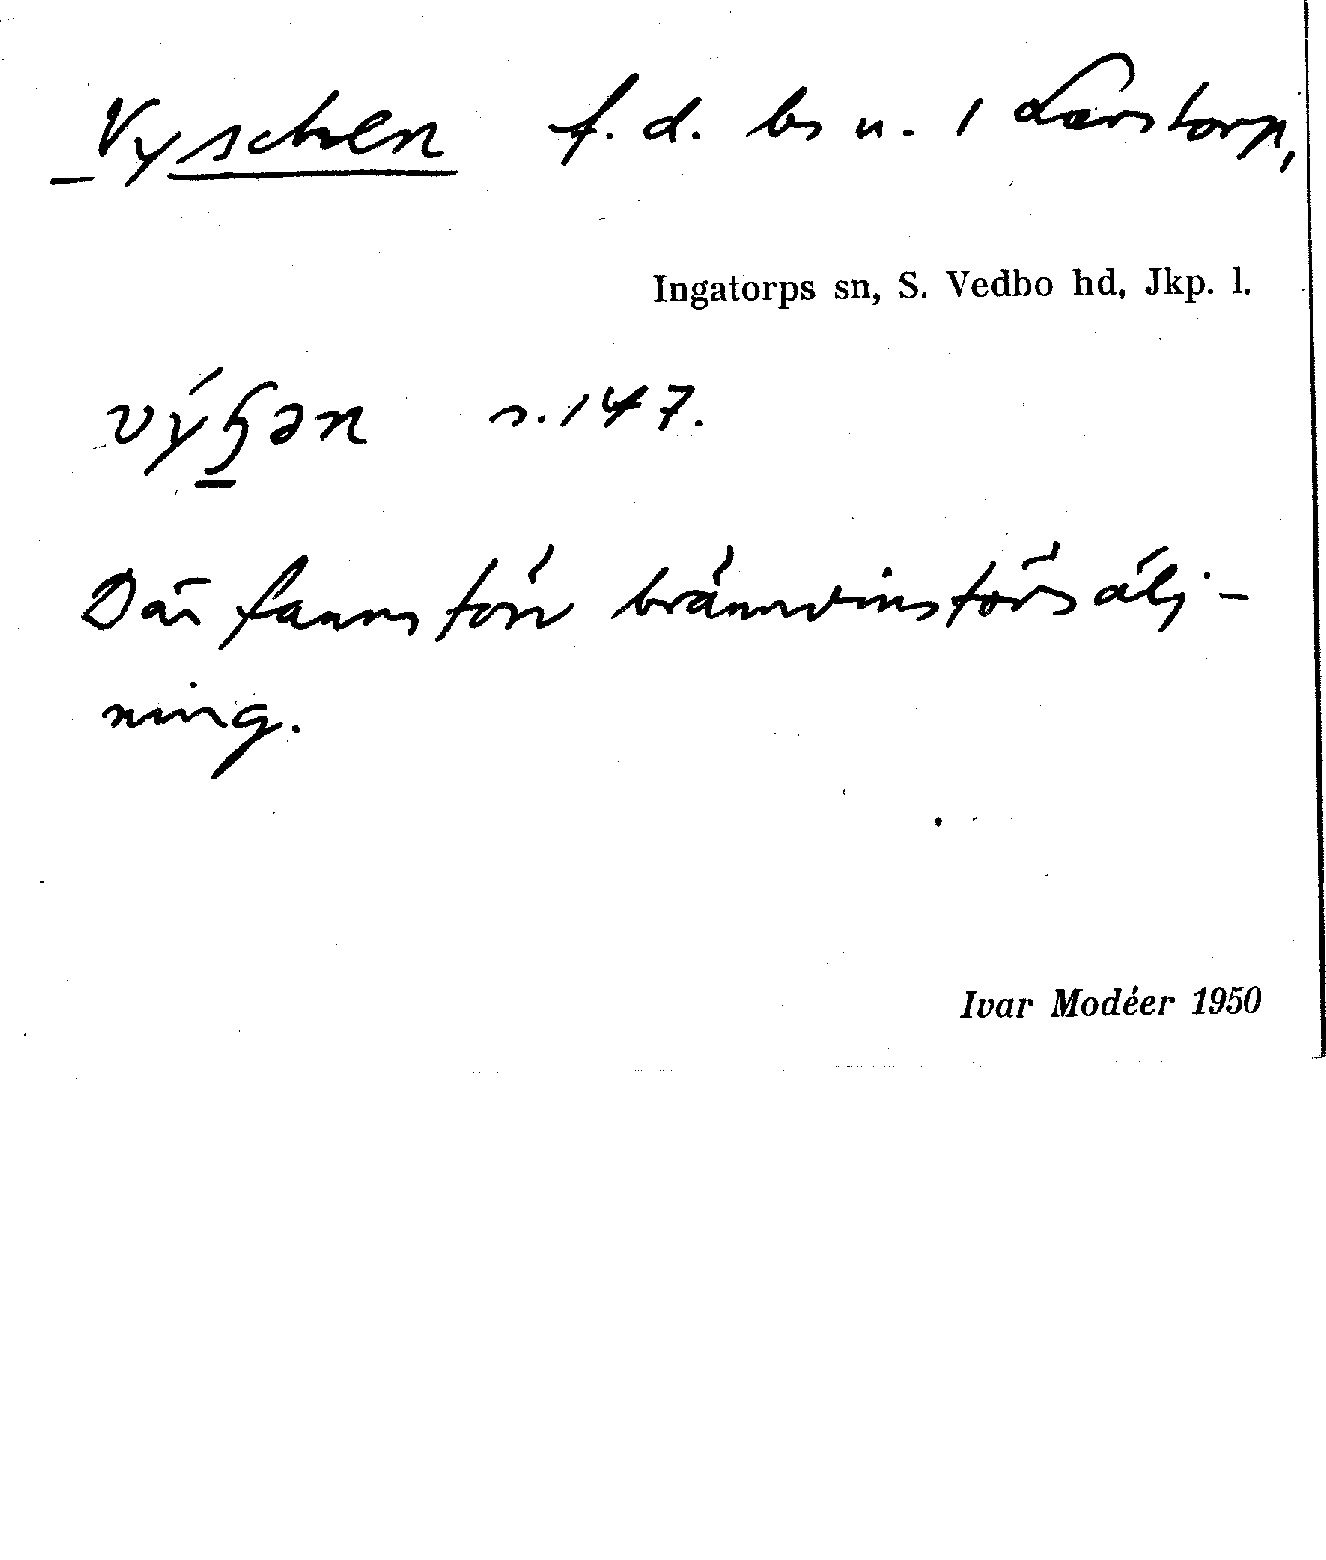 Vyschen f. d. bs u. 1 Larstorp,
Ingatorps sn, S. Vedbo hd, Jkp. l.
s. 147.
Där fanns förr brännvinsförsälj-
ning.
Ivar Modéer 1950